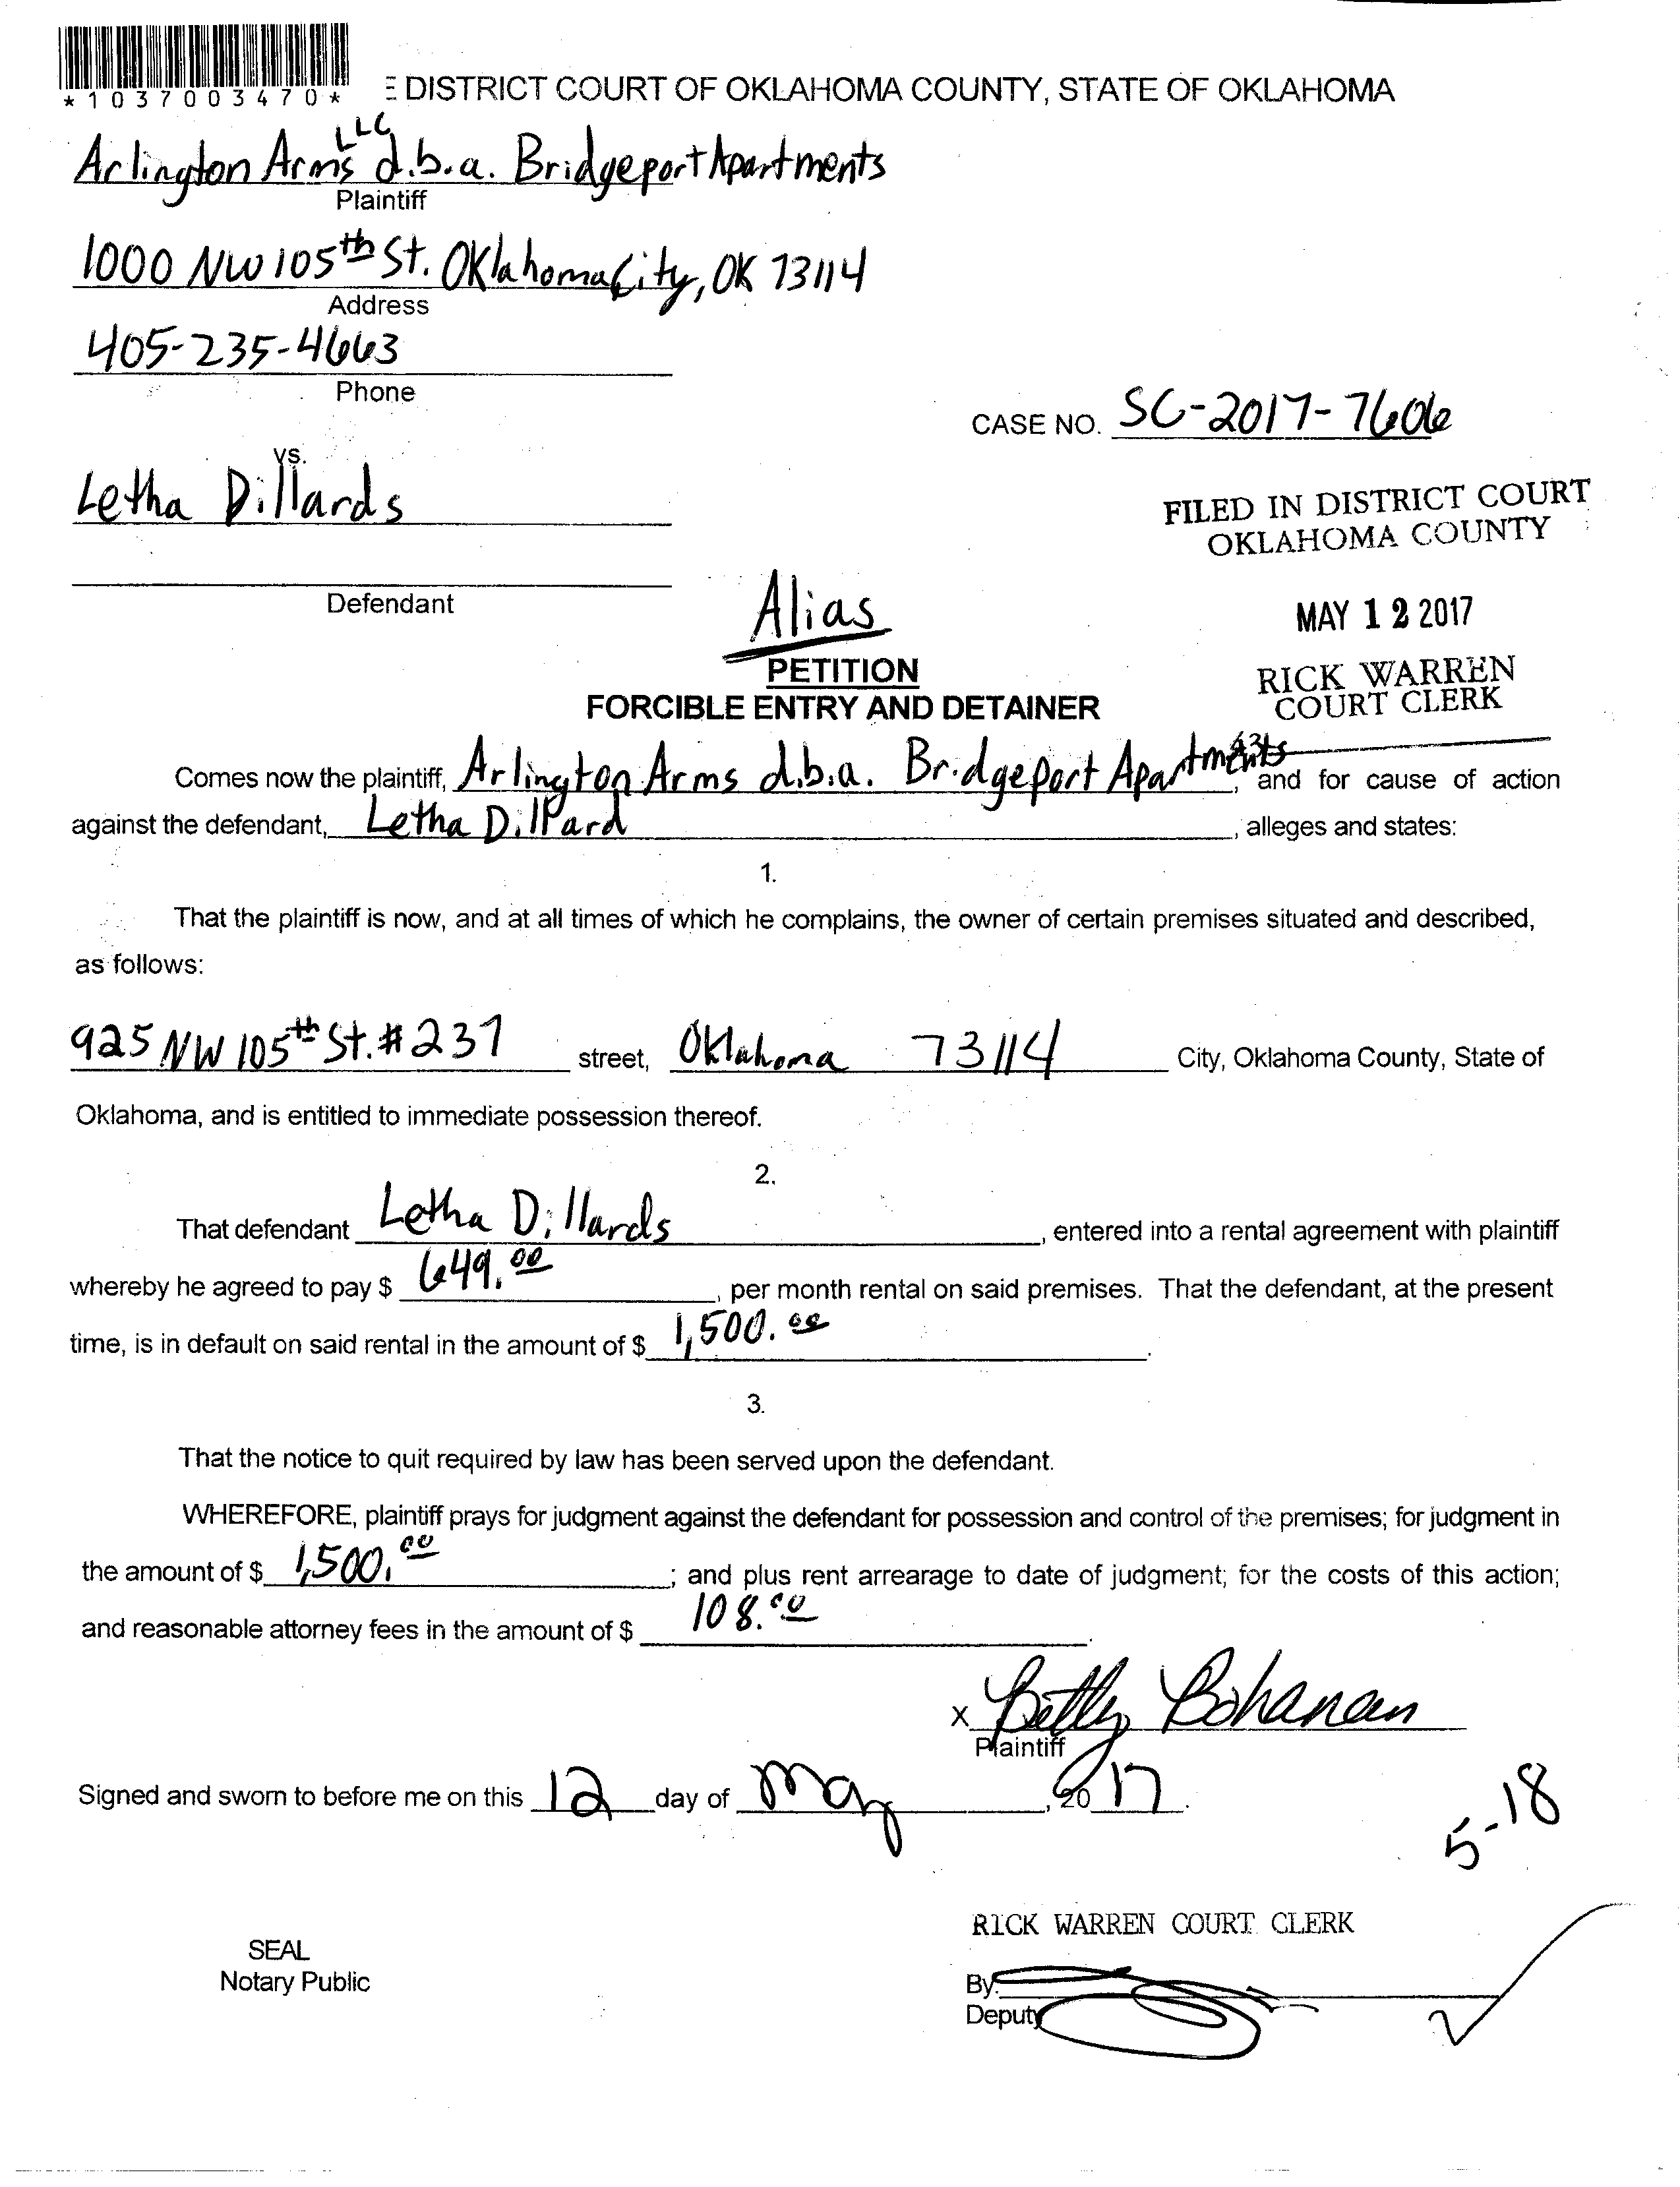 *1037003470*
DISTRICT COURT OF OKLAHOMA COUNTY, STATE OF OKLAHOMA
LLC
Arlington Arms d.b.a. Bridgeport Apartments
Plaintiff
1000 NW 105th St. Oklahoma City, OK 73114
Address
405-235-4663
Phone
CASE NO. SC-2017-7606
vs.
Letha Dillards
FILED IN DISTRICT COURT
OKLAHOMA COUNTY
Defendant
Alias
MAY 12 2017
PETITION
RICK WARREN
COURT CLERK
FORCIBLE ENTRY AND DETAINER
Comes now the plaintiff, Arlington Arms d.b.a. Bridgeport Apartments, and for cause of action
against the defendant, Letha Dillard, alleges and states:
1.
That the plaintiff is now, and at all times of which he complains, the owner of certain premises situated and described,
as follows:
925 NW 105th St. #237 street, Oklahoma 73114 City, Oklahoma County, State of
Oklahoma, and is entitled to immediate possession thereof.
2.
That defendant Letha Dillards, entered into a rental agreement with plaintiff
whereby he agreed to pay $ 649.00, per month rental on said premises. That the defendant, at the present
time, is in default on said rental in the amount of $ 1,500.00.
3.
That the notice to quit required by law has been served upon the defendant.
WHEREFORE, plaintiff prays for judgment against the defendant for possession and control of the premises; for judgment in
the amount of $ 1,500.00; and plus rent arrearage to date of judgment; for the costs of this action;
and reasonable attorney fees in the amount of $ 108.00.
X Betty Bohanan
Plaintiff
Signed and sworn to before me on this 12 day of May, 2017.
5-18
RICK WARREN COURT CLERK
SEAL
Notary Public
By:
Deputy